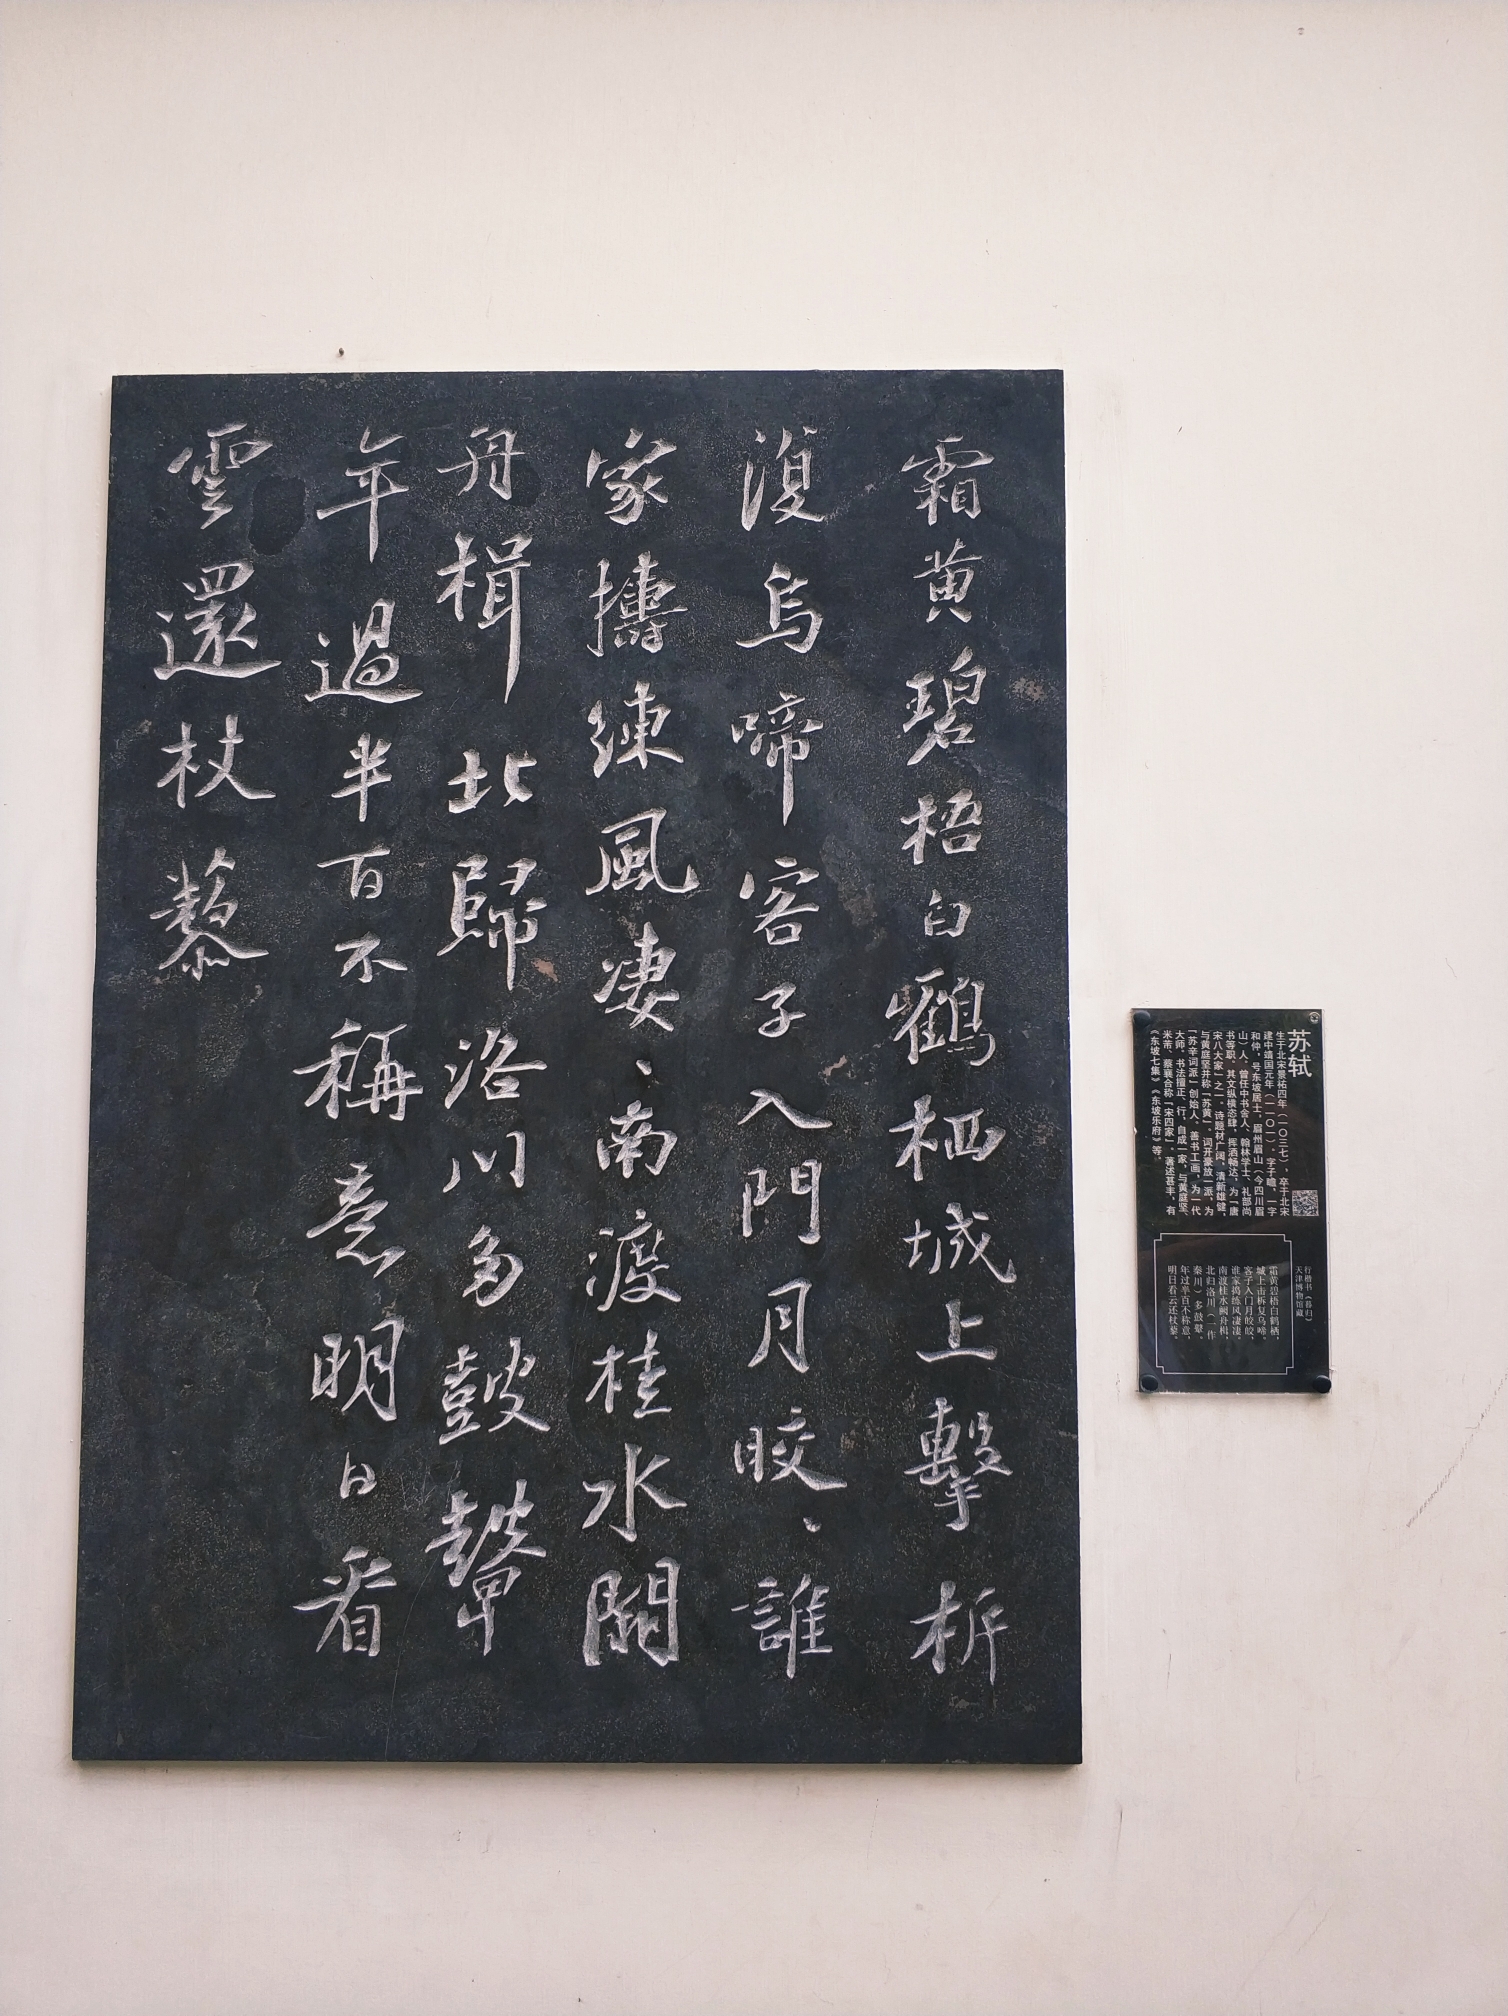 霜黄碧梧白鶴栖城上擊柝
復烏啼客子入門月皎、誰
家擣練風凄、南渡桂水闕
舟楫北歸洛川多鼓鼙
年過半百不稱意明日看
雲還杖藜
苏轼
生于北宋景祐四年（一〇三七），卒于北宋
建中靖国元年（一一〇一），字子瞻，一字
和仲，号东坡居士，眉州眉山（今四川眉
山）人，曾任中书舍人、翰林学士、礼部尚
书等职。其文纵横恣肆，挥洒畅达，为「唐
宋八大家」之一。诗题材广阔，清新雄健，
与黄庭坚并称「苏黄」。词开豪放一派，为
「苏辛词派」创始人。善书工画，为一代
大师。书法擅正、行，自成一家，与黄庭坚、
米芾、蔡襄合称「宋四家」。著述甚丰，有
《东坡七集》《东坡乐府》等。
行楷书《暮归》
天津博物馆藏
霜黄碧梧白鹤栖，
城上击柝复乌啼。
客子入门月皎皎，
谁家捣练风凄凄。
南渡桂水阙舟楫，
北归洛川（一作
秦川）多鼓鼙。
年过半百不称意，
明日看云还杖藜。